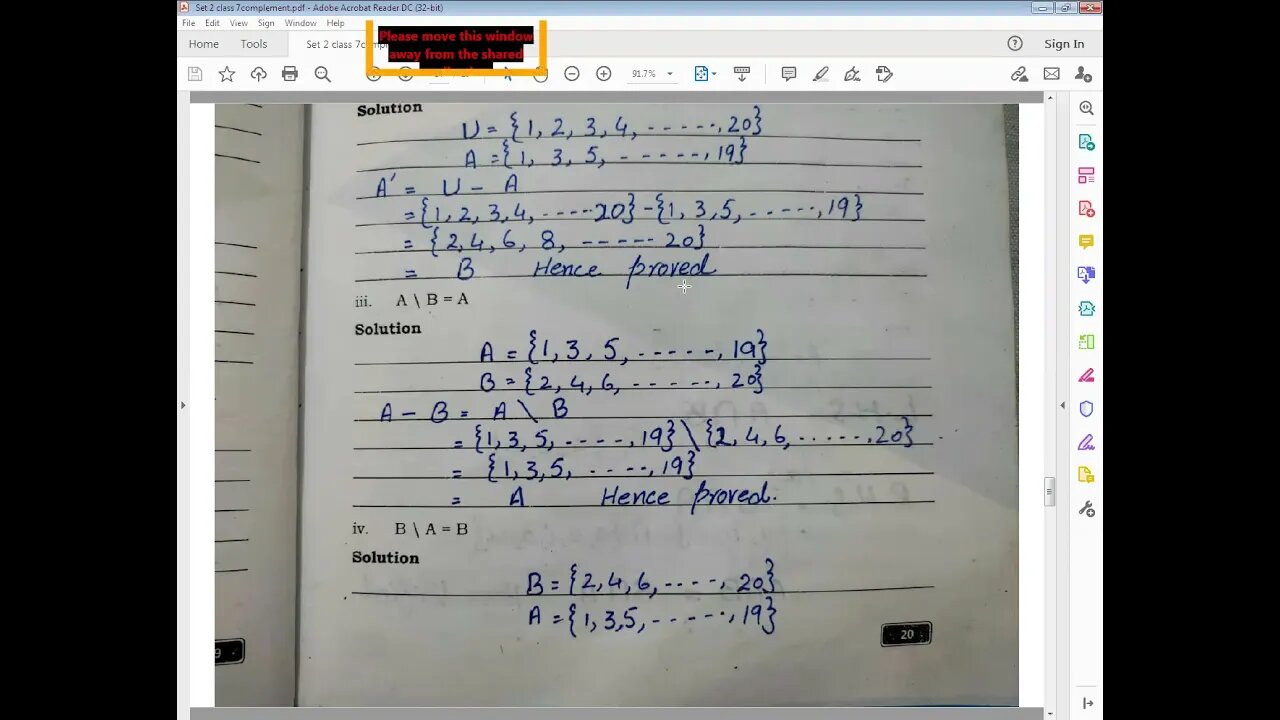 Set 2 class 7complement.pdf - Adobe Acrobat Reader DC (32-bit)
File Edit View Sign Window Help
Please move this window
away from the shared
Home Tools Set 2 class 7compl Sign In
91.7%
Solution
U = {1, 2, 3, 4, - - - - -, 20}
A = {1, 3, 5, - - - - - -, 19}
A' = U - A
= {1, 2, 3, 4, - - - - - 20} - {1, 3, 5, - - - - - -, 19}
= {2, 4, 6, 8, - - - - - - 20}
= B Hence proved
iii. A \ B = A
Solution
A = {1, 3, 5, - - - - - -, 19}
B = {2, 4, 6, - - - - - -, 20}
A - B = A \ B
= {1, 3, 5, - - - - -, 19} \ {2, 4, 6, - - - - - -, 20}
= {1, 3, 5, - - - - -, 19}
= A Hence proved.
iv. B \ A = B
Solution
B = {2, 4, 6, - - - - -, 20}
A = {1, 3, 5, - - - - - -, 19}
9
20